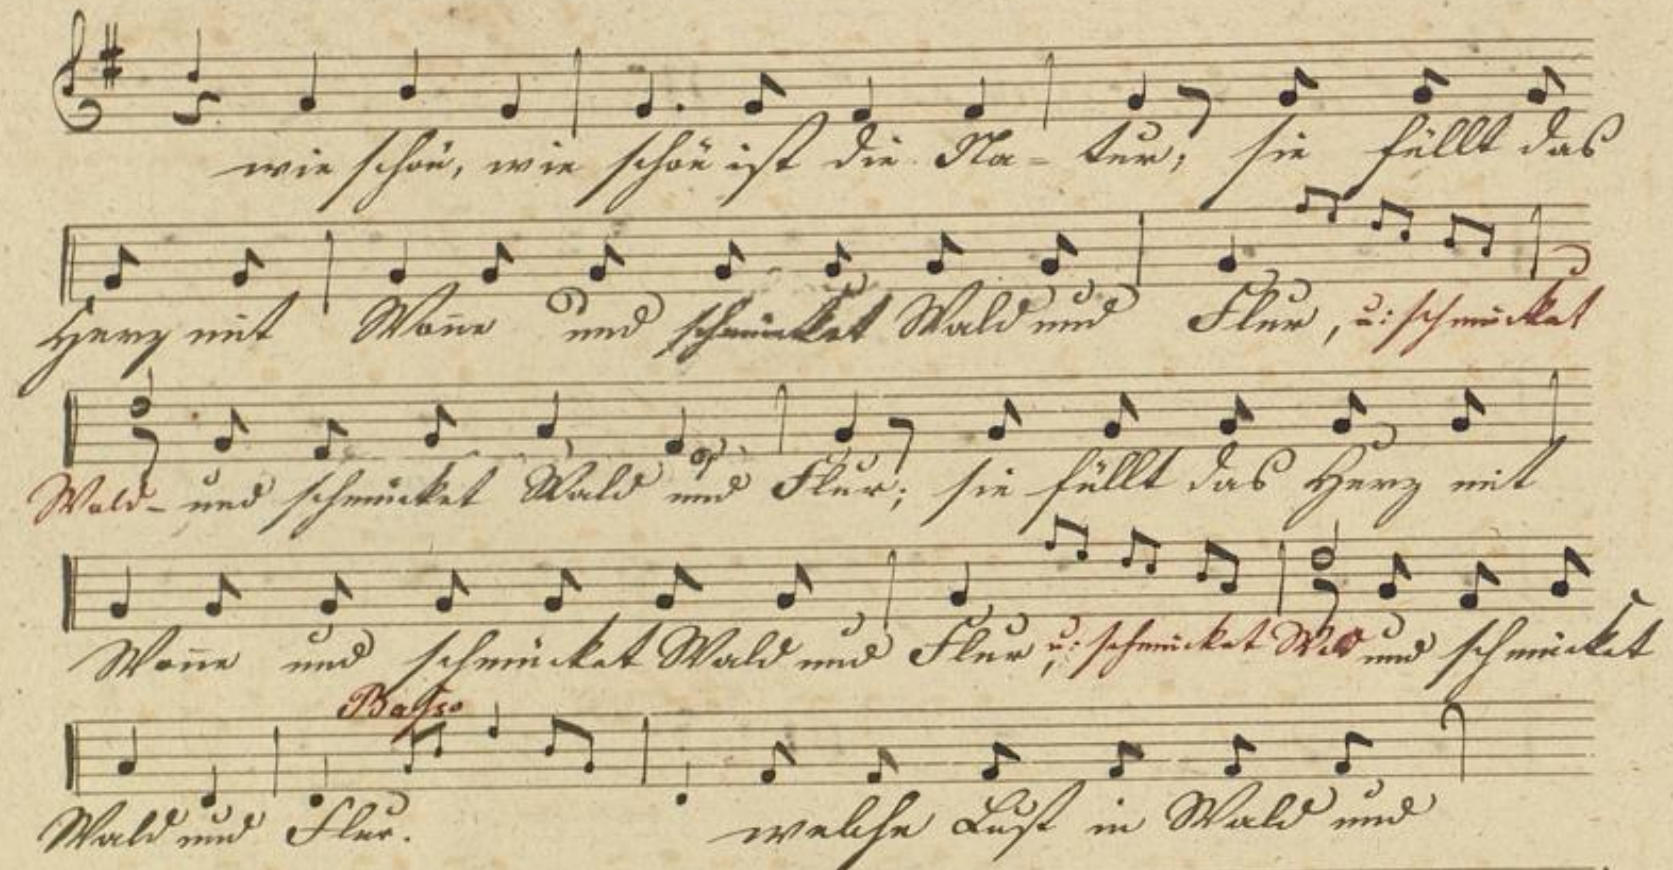 wie schön, wie schön ist die Na- tur; sie füllt das
Herz mit Woñe und schmücket Wald und Flur, u: schmücket
Wald- und schmücket Wald und Flur; sie füllt das Herz mit
Woñe und schmücket Wald und Flur u: schmücket Wald und schmücket
Basso
Wald und Flur. welche Lust in Wald und